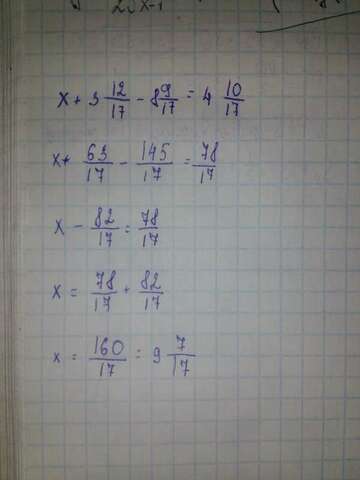 x + 3 12/17 - 8 9/17 = 4 10/17
x + 63/17 - 145/17 = 78/17
x - 82/17 = 78/17
x = 78/17 + 82/17
x = 160/17 = 9 7/17